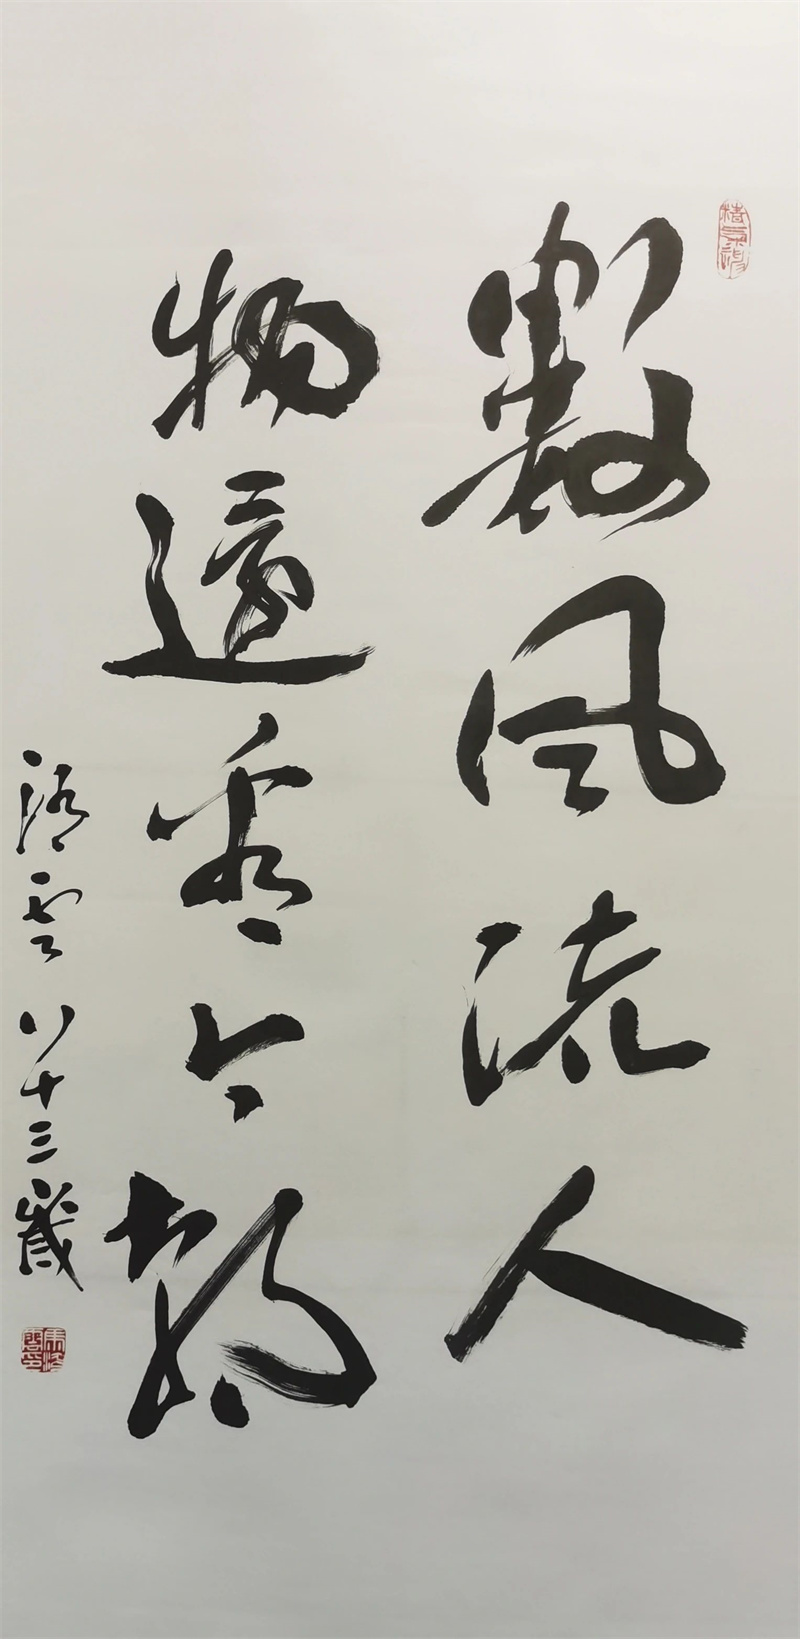 數風流人
物還看今朝
雲八十三歲